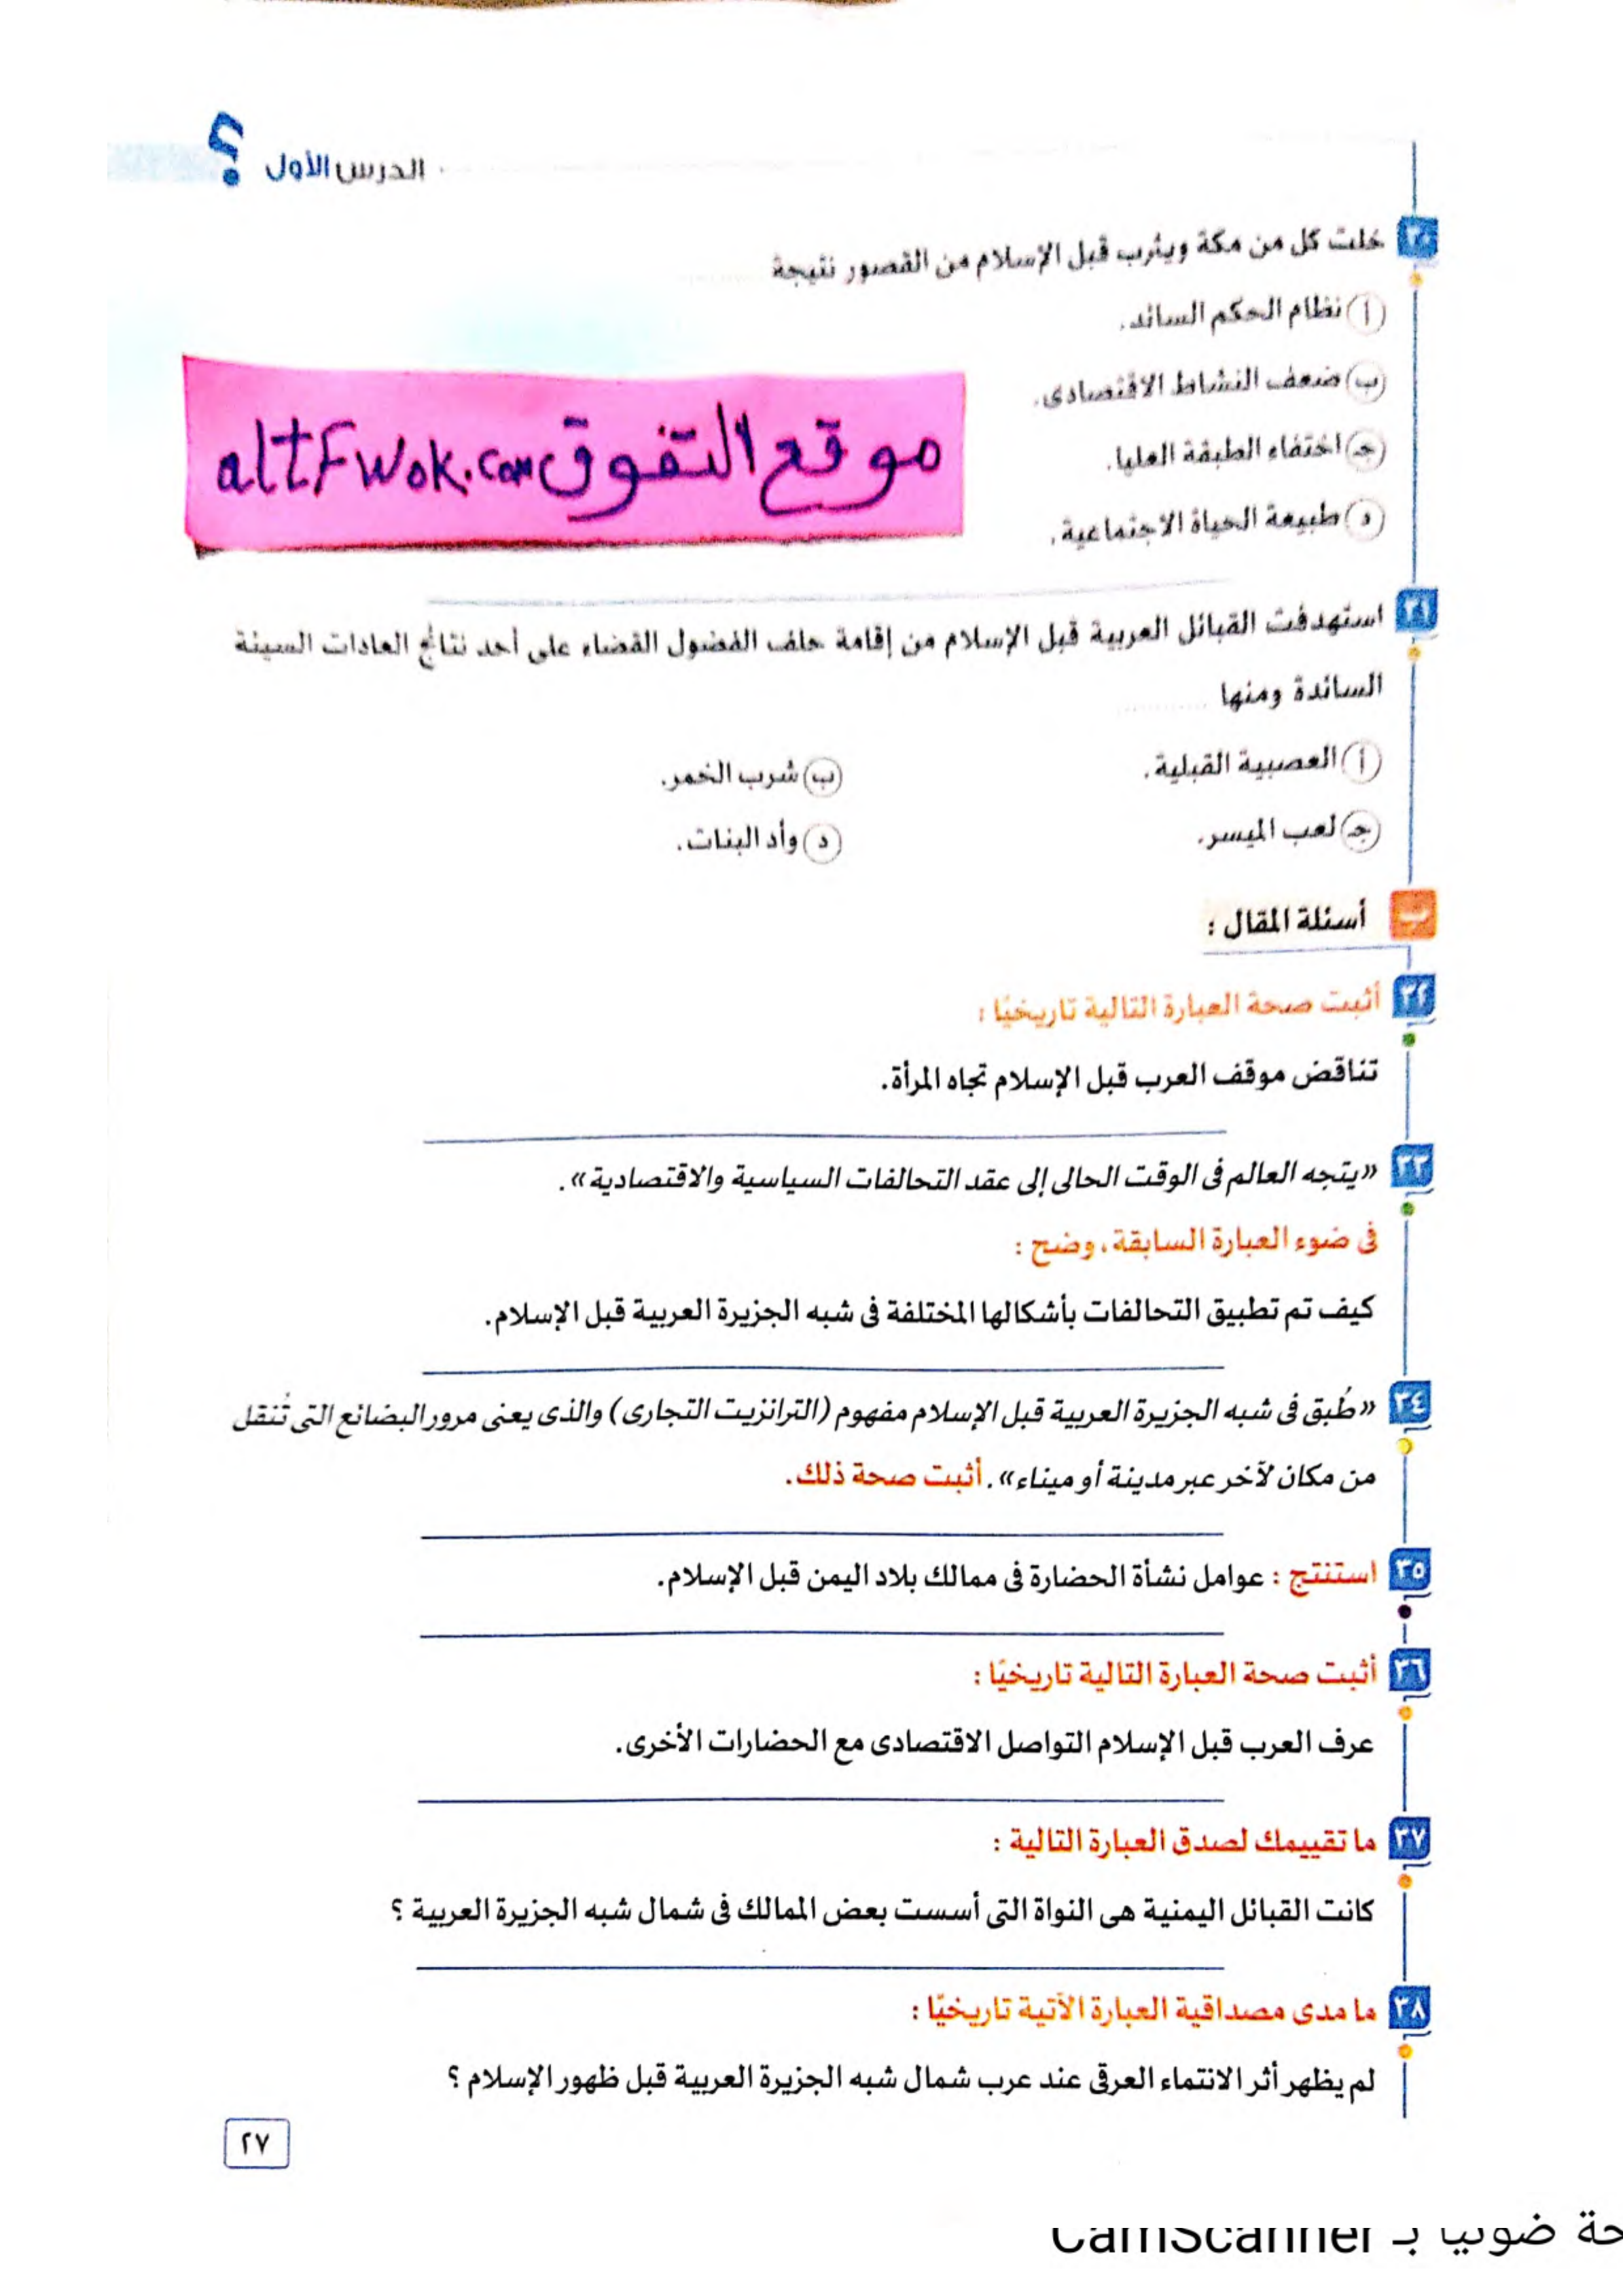 الدرس الأول
؟
٣٠ خلت كل من مكة ويثرب قبل الإسلام من القصور نتيجة
أ نظام الحكم السائد.
ب ضعف النشاط الاقتصادى.
جـ اختفاء الطبقة العليا.
د طبيعة الحياة الاجتماعية.
موقع التفوق altFwok.com
٣١ استهدفت القبائل العربية قبل الإسلام من إقامة حلف الفضول القضاء على أحد نتائج العادات السيئة
السائدة ومنها ..........
أ العصبية القبلية.
ب شرب الخمر.
جـ لعب الميسر.
د وأد البنات.
ب أسئلة المقال :
٣٢ أثبت صحة العبارة التالية تاريخيًا :
تناقض موقف العرب قبل الإسلام تجاه المرأة.
٣٣ «يتجه العالم فى الوقت الحالى إلى عقد التحالفات السياسية والاقتصادية».
فى ضوء العبارة السابقة، وضح :
كيف تم تطبيق التحالفات بأشكالها المختلفة فى شبه الجزيرة العربية قبل الإسلام.
٣٤ «طُبق فى شبه الجزيرة العربية قبل الإسلام مفهوم (الترانزيت التجارى) والذى يعنى مرور البضائع التى تُنقل
من مكان لآخر عبر مدينة أو ميناء». أثبت صحة ذلك.
٣٥ استنتج : عوامل نشأة الحضارة فى ممالك بلاد اليمن قبل الإسلام.
٣٦ أثبت صحة العبارة التالية تاريخيًا :
عرف العرب قبل الإسلام التواصل الاقتصادى مع الحضارات الأخرى.
٣٧ ما تقييمك لصدق العبارة التالية :
كانت القبائل اليمنية هى النواة التى أسست بعض الممالك فى شمال شبه الجزيرة العربية ؟
٣٨ ما مدى مصداقية العبارة الآتية تاريخيًا :
لم يظهر أثر الانتماء العرقى عند عرب شمال شبه الجزيرة العربية قبل ظهور الإسلام ؟
٢٧
حة ضوئيا بـ CamScanner